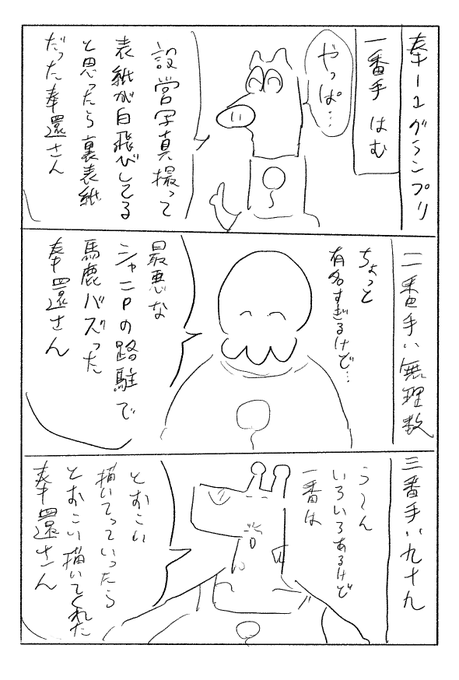 奉-1グランプリ
一番手 はむ
やっぱ…
設営写真撮って
表紙が白飛びしてる
と思ったら裏表紙
だった奉還さん
二番手い無理数
ちょっと
有名すぎるけど…
最悪な
シャニPの路駐で
馬鹿バズった
奉還さん
三番手い九十九
う〜ん
いろいろあるけど
一番は
とおこい
描いてっていったら
とおこい描いてくれた
奉還さん